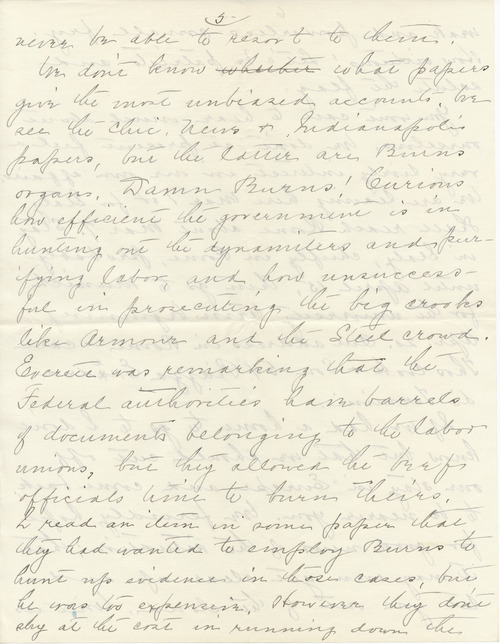 5-
never be able to resort to them.
We don't know whether what papers
give the most unbiased accounts. We
see the Chic. News & Indianapolis
papers, but the latter are Burns
organs. Damn Burns! Curious
how efficient the government is in
hunting out the dynamiters and pur-
ifying labor, and how unsuccess-
ful in prosecuting the big crooks
like Armour and the Steel crowd.
Everett was remarking that the
Federal authorities have barrels
of documents belonging to the labor
unions, but they allowed the beef
officials time to burn theirs.
I read an item in some paper that
they had wanted to employ Burns to
hunt up evidence in those cases, but
he was too expensive. However they don't
shy at the cost in running down the